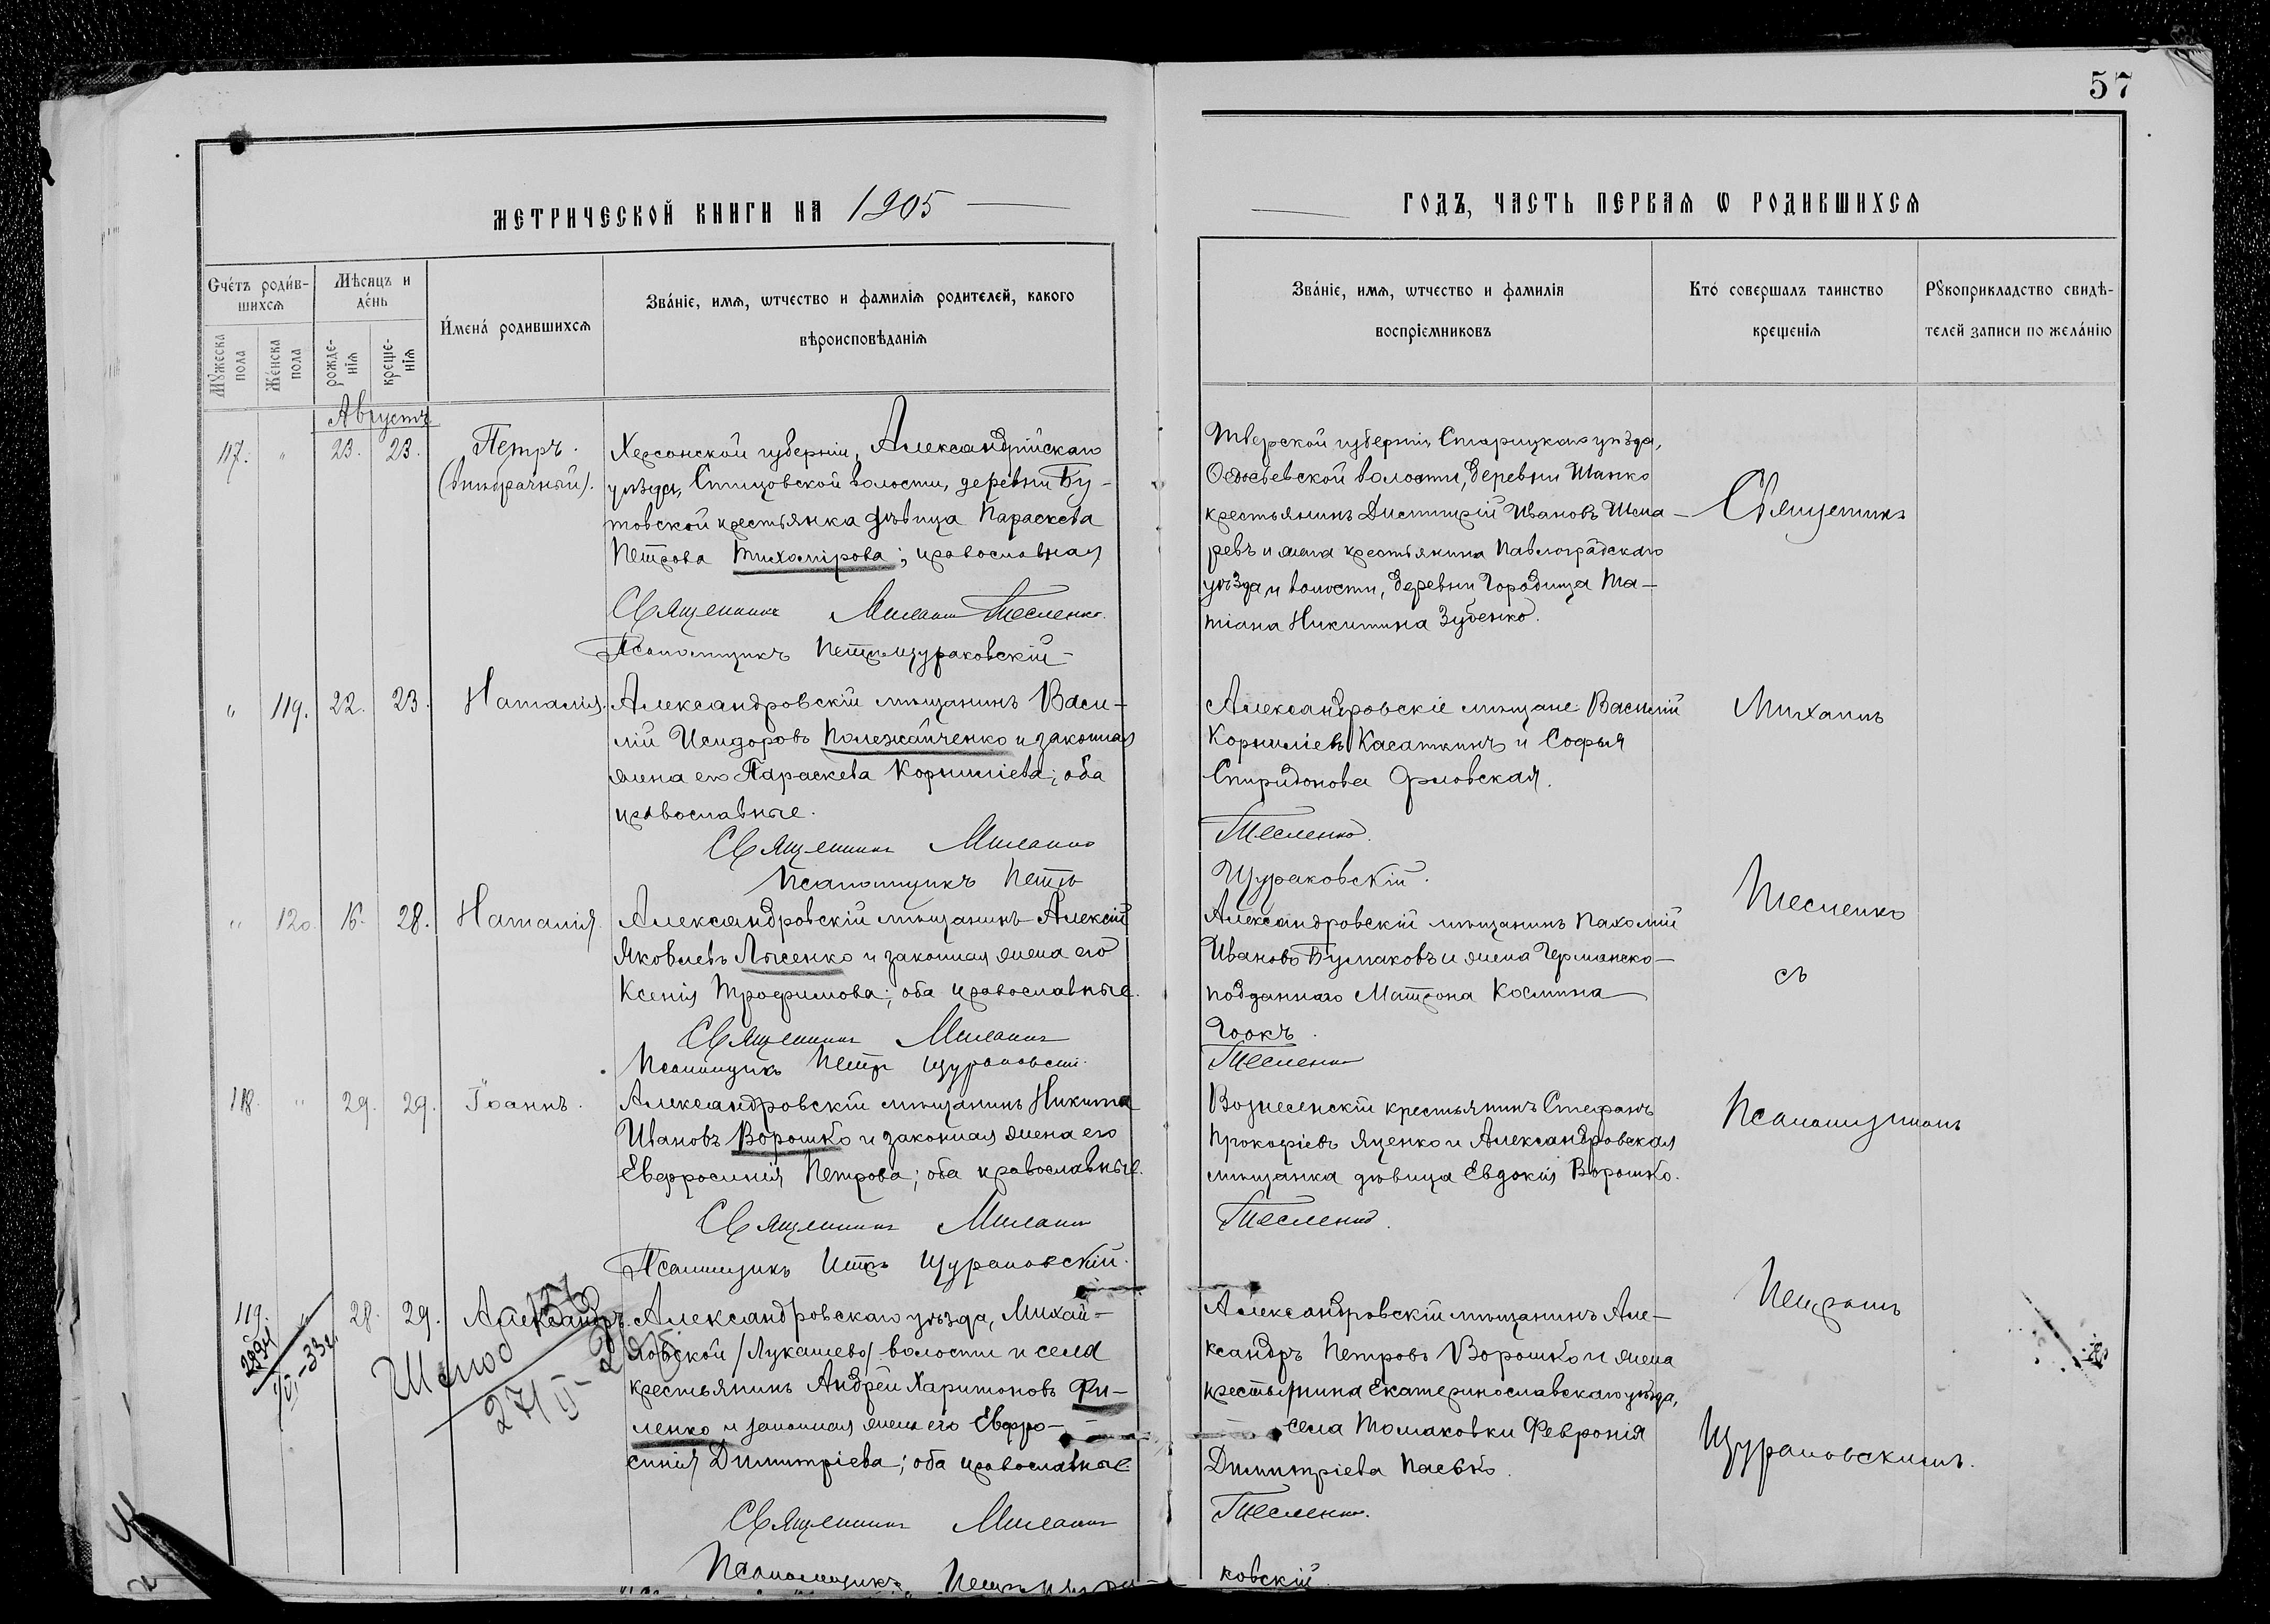 57
МЕТРИЧЕСКОЙ КНИГИ НА 1905
ГОДЪ, ЧАСТЬ ПЕРВАЯ Ѡ РОДИВШИХСЯ
Счётъ роди́в-
шихся
Мѣсяцъ и
де́нь
Мꙋ́жеска
пола
Же́нска
пола
рожде-
нія
креще-
нія
И́мена́ родившихся
Зва́ніе, имя, ѿтчество и фамилія родителей, какого
вѣроисповѣданія
Зва́ніе, имя, ѿтчество и фамилія
воспріемниковъ
Кто́ совершалъ таинство
крещенія
Рꙋкоприкладство свидѣ-
телей записи по жела́нію
Августъ
117. " 23. 23. Петръ.
(внѣбрачный).
Херсонской губерніи, Александрійскаго
уѣзда, волости, деревни Бу-
товской крестьянка дѣвица Параскева
Петрова Тихомірова; православная
Священникъ Михаилъ Тесленко.
Псаломщикъ Петръ Щураковскій
Тверской губерніи Старицкаго уѣзда,
волости, деревни Шанко
крестьянинъ Димитрій Ивановъ
и жена крестьянина Павлоградскаго
уѣзда и волости, деревни Городища Та-
тіана Никитина Зубенко.
Священникъ
" 119. 22. 23. Наталія.
Александровскій мѣщанинъ Васи-
лій Исидоровъ Полежайченко и законная
жена его Параскева Корниліева; оба
православные.
Священникъ Михаилъ
Псаломщикъ Петръ
Александровскіе мѣщане Василій
Корниліевъ Касаткинъ и Софья
Спиридонова Орловская.
Тесленко.
Щураковскій.
Михаилъ
" 120. 16. 28. Наталія.
Александровскій мѣщанинъ Алексій
Яковлевъ Лысенко и законная жена его
Ксенія Трофимова; оба православные.
Священникъ Михаилъ
Псаломщикъ Петръ Щураковскій.
Александровскій мѣщанинъ Пахомій
Ивановъ Бумаковъ и жена Германско-
подданнаго Матрона Космина
Гоокъ.
Тесленко
Тесленко
съ
118. " 29. 29. Іоаннъ.
Александровскій мѣщанинъ Никита
Ивановъ Ворошко и законная жена его
Евфросинія Петрова; оба православные.
Священникъ Михаилъ
Псаломщикъ Петръ Щураковскій.
Вознесенскій крестьянинъ Стефанъ
Прокофіевъ Яценко и Александровская
мѣщанка дѣвица Евдокія Ворошко.
Тесленко.
Псаломщикомъ
119. " 28. 29. Александръ.
Александровскаго уѣзда, Михай-
ловской /Лукашево/ волости и села
крестьянинъ Андрей Харитоновъ Фи-
ленко и законная жена его Евфро-
синія Димитріева; оба православные
Священникъ Михаилъ
Псаломщикъ
Александровскій мѣщанинъ Але-
ксандръ Петровъ Ворошко и жена
крестьянина Екатеринославскаго уѣзда,
села Томаковки Февронія
Димитріева Паевко.
Тесленко.
ковскій.
Петромъ
Щураковскимъ.